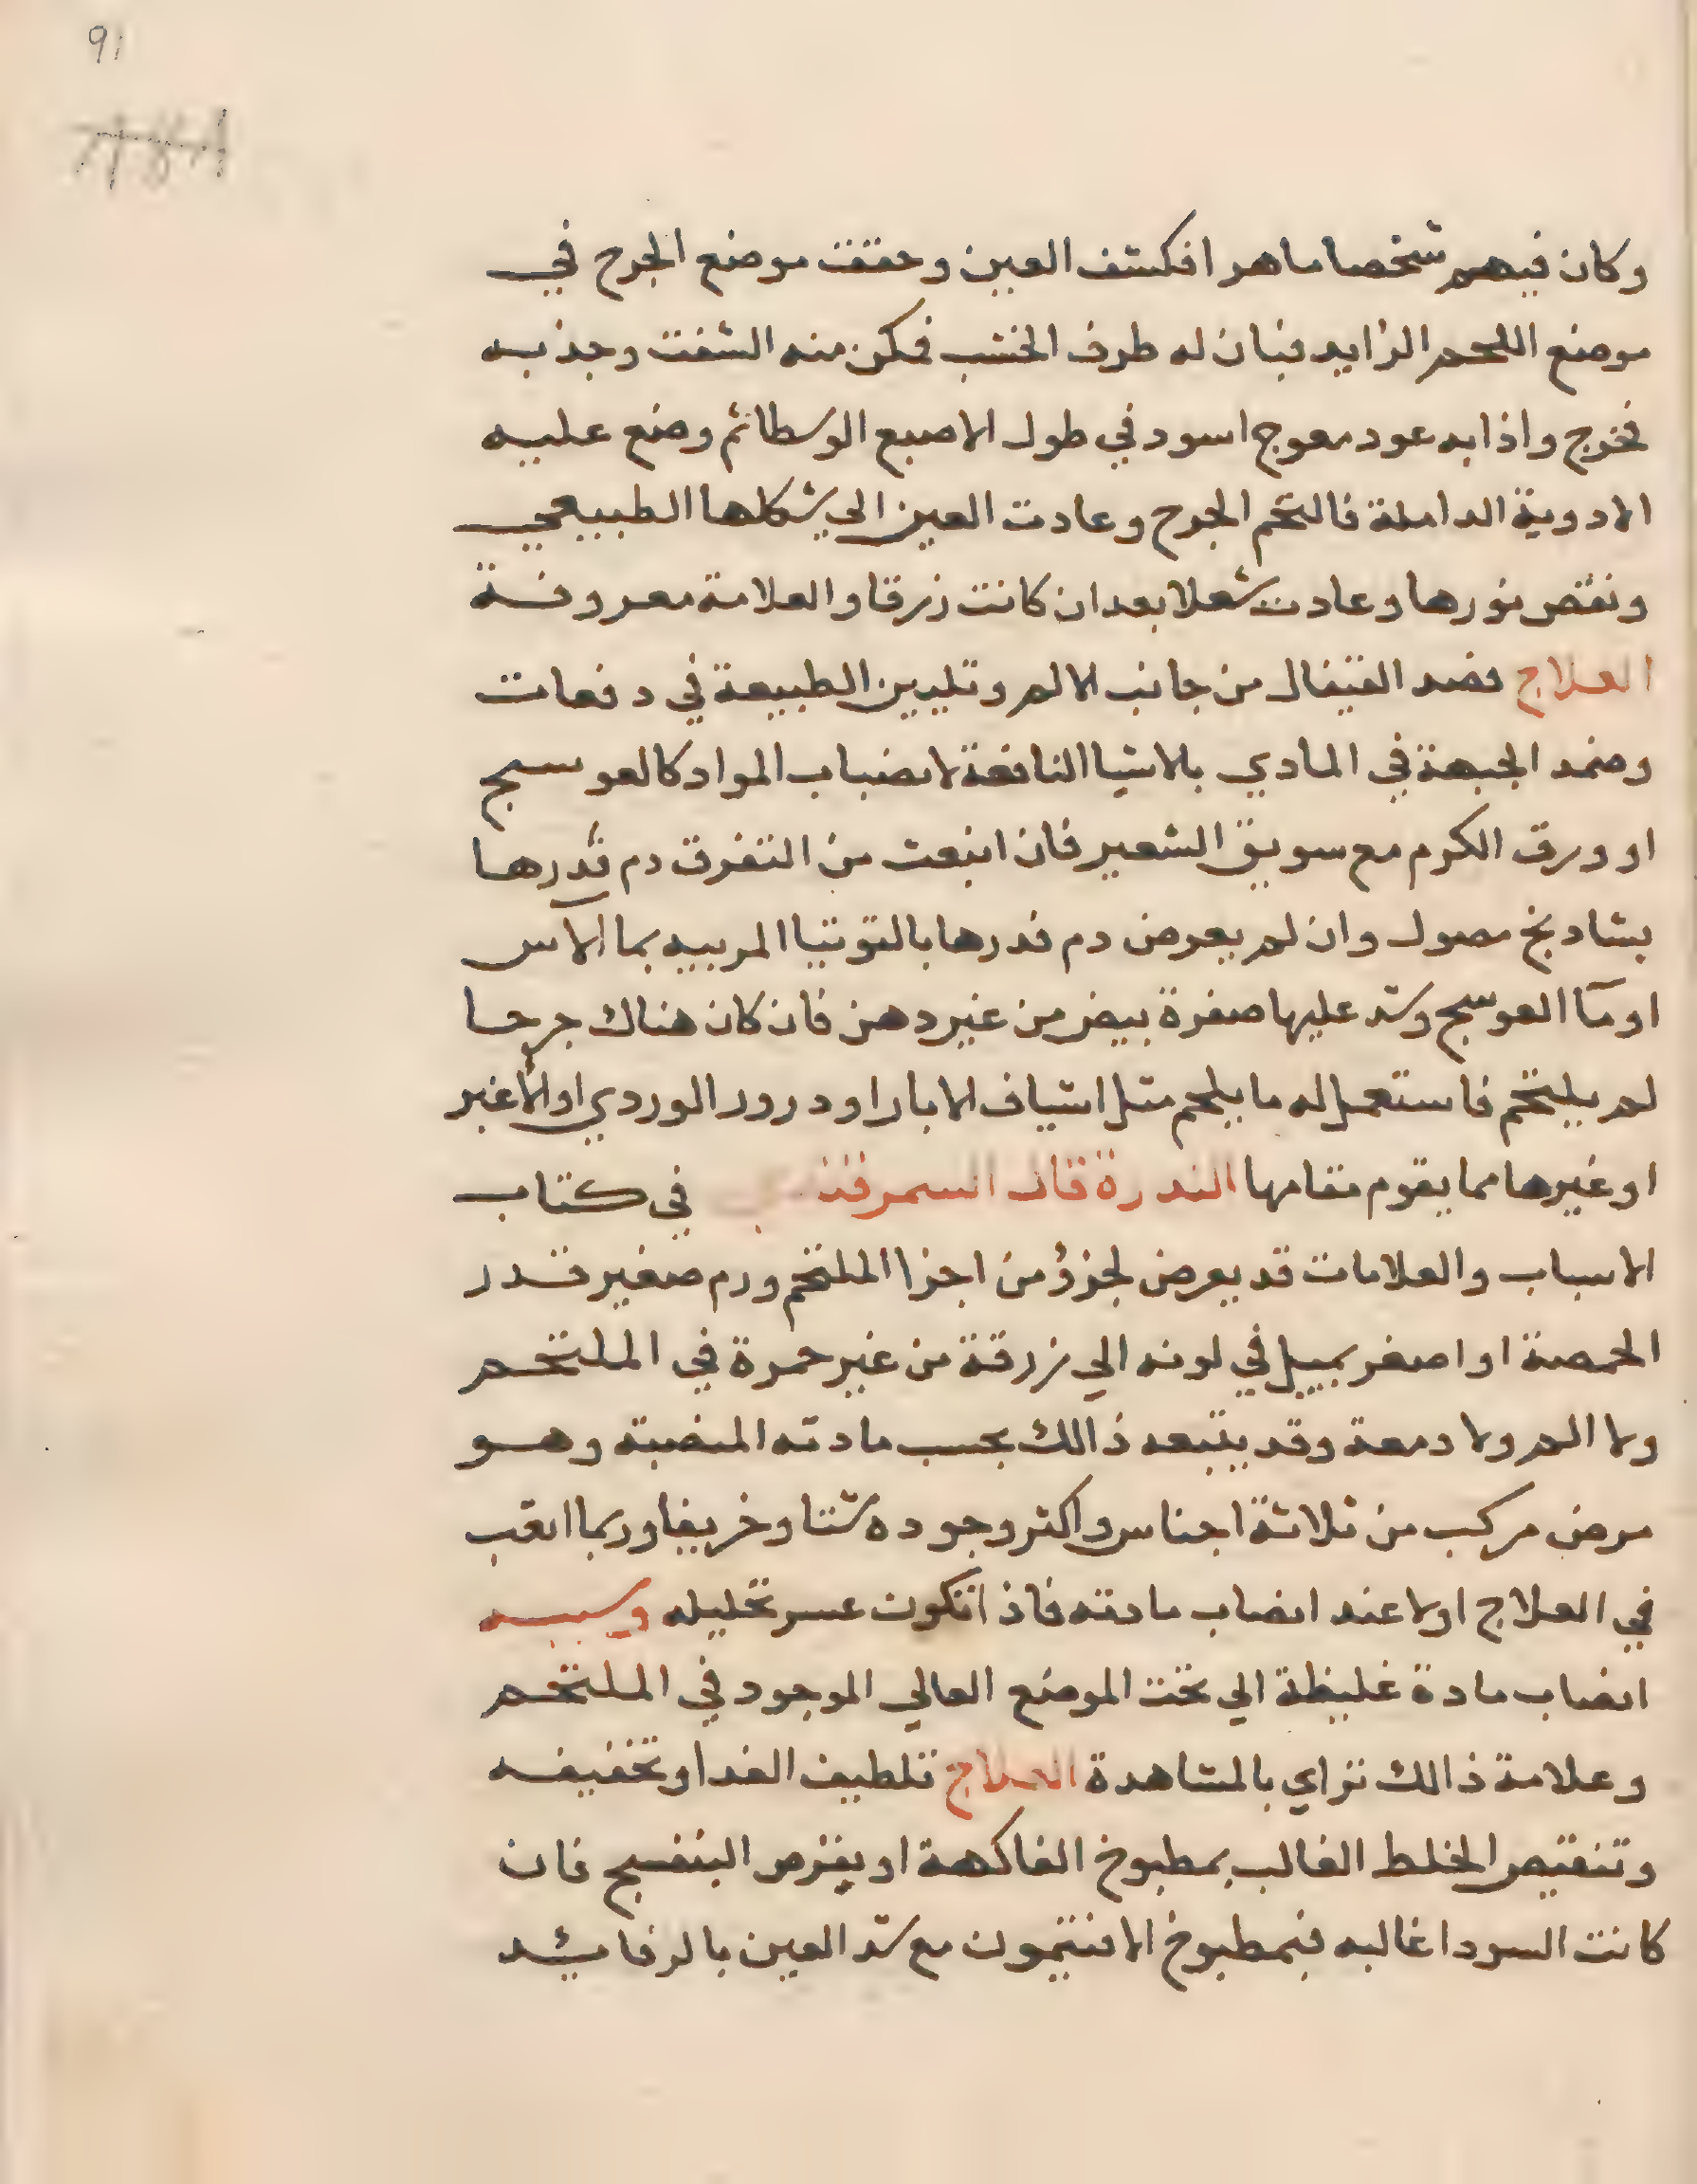 91
وكان فيهم شخصا ماهرا فكشف العين وحقق موضع الجرح في
موضع اللحم الزايد فبان له طرف الخشب فمكن منه الشفت وجذبه
فخرج واذا به عود معوج اسود في طول الاصبع الوسطا ثم وضع عليه
الادوية الداملة فالتحم الجرح وعادت العين الي شكلها الطبيعي
ونقص نورها وعادت شعلا بعد ان كانت زرقا والعلامة معروفة
العلاج فصد القيفال من جانب الالم وتليين الطبيعة في دفعات
وضمد الجبهة في المادي بالاشيا النافعة لانضباب المواد كالعوسج
او ورق الكرم مع سويق الشعير فان انبعث من التفرق دم فذرها
بشادنج مصول وان لم يعرض دم فذرها بالتوتيا المربيه بما الآس
او مآ العوسج وشد عليها صفرة بيض من غير دهن فان كان هناك جرحا
لم يلتحم فاستعمل له ما يلحم مثل اشياف الابار او درور الوردي او الاغبر
او غيرها مما يقوم مقامها الندرة قال السمرقندي في كتاب
الاسباب والعلامات قد يعرض لجزؤ من اجزا الملتحم ورم صغير قدر
الحمصة او اصغر يميل في لونه الي زرقة من غير حمرة في الملتحم
ولا الم ولا دمعة وقد يتبعه ذالك بحسب مادته المنصبة وهو
مرض مركب من ثلاثة اجناس واكثر وجوده شتا وخريفا وربما اتعب
في العلاج اولا عند انصاب مادته فاذا تكون عسر تحليله وسببه
انصاب مادة غليظة الي تحت الموضع العالي الموجود في الملتحم
وعلامة ذالك تراي بالمشاهدة العلاج تلطيف الغدا وتخفيفه
وتنقيص الخلط الغالب بمطبوخ الفاكهة او بقرص البنفسج فان
كانت السودا غالبه فبمطبوخ الافتيمون مع شد العين بالرفايد